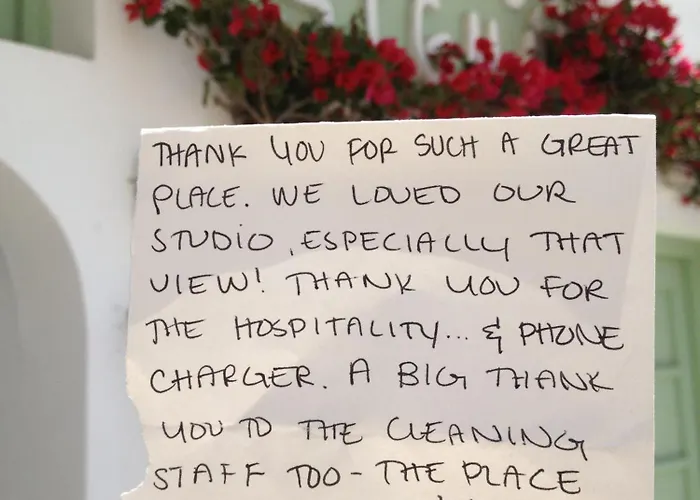 THANK YOU FOR SUCH A GREAT
PLACE. WE LOVED OUR
STUDIO, ESPECIALLY THAT
VIEW! THANK YOU FOR
THE HOSPITALITY... & PHONE
CHARGER. A BIG THANK
YOU TO THE CLEANING
STAFF TOO - THE PLACE